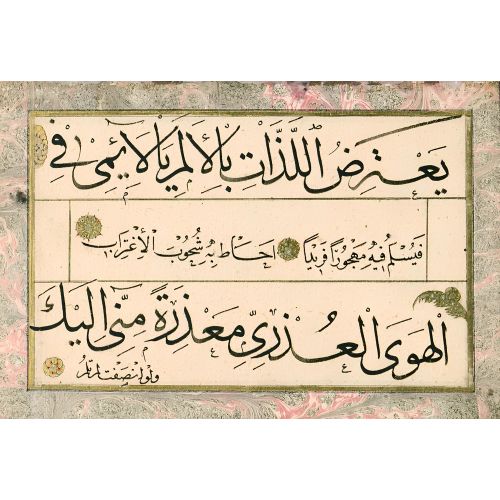 يَعْتَرِضُ اللَّذَّاتِ بِالْاَلَمِ يَا لَائِمِى فِى
فَيُسْلَمُ فِيهِ مَهْجُورًا فَرِيدًا اَحَاطَ بِهِ شُحُوبُ الْاِغْتِرَابِ
الْهَوَى الْعُذْرِىِّ مَعْذِرَةً مِنِّى اِلَيْكَ
وَلَوْ انْصَفْتَ لَمْ تَلُمْ